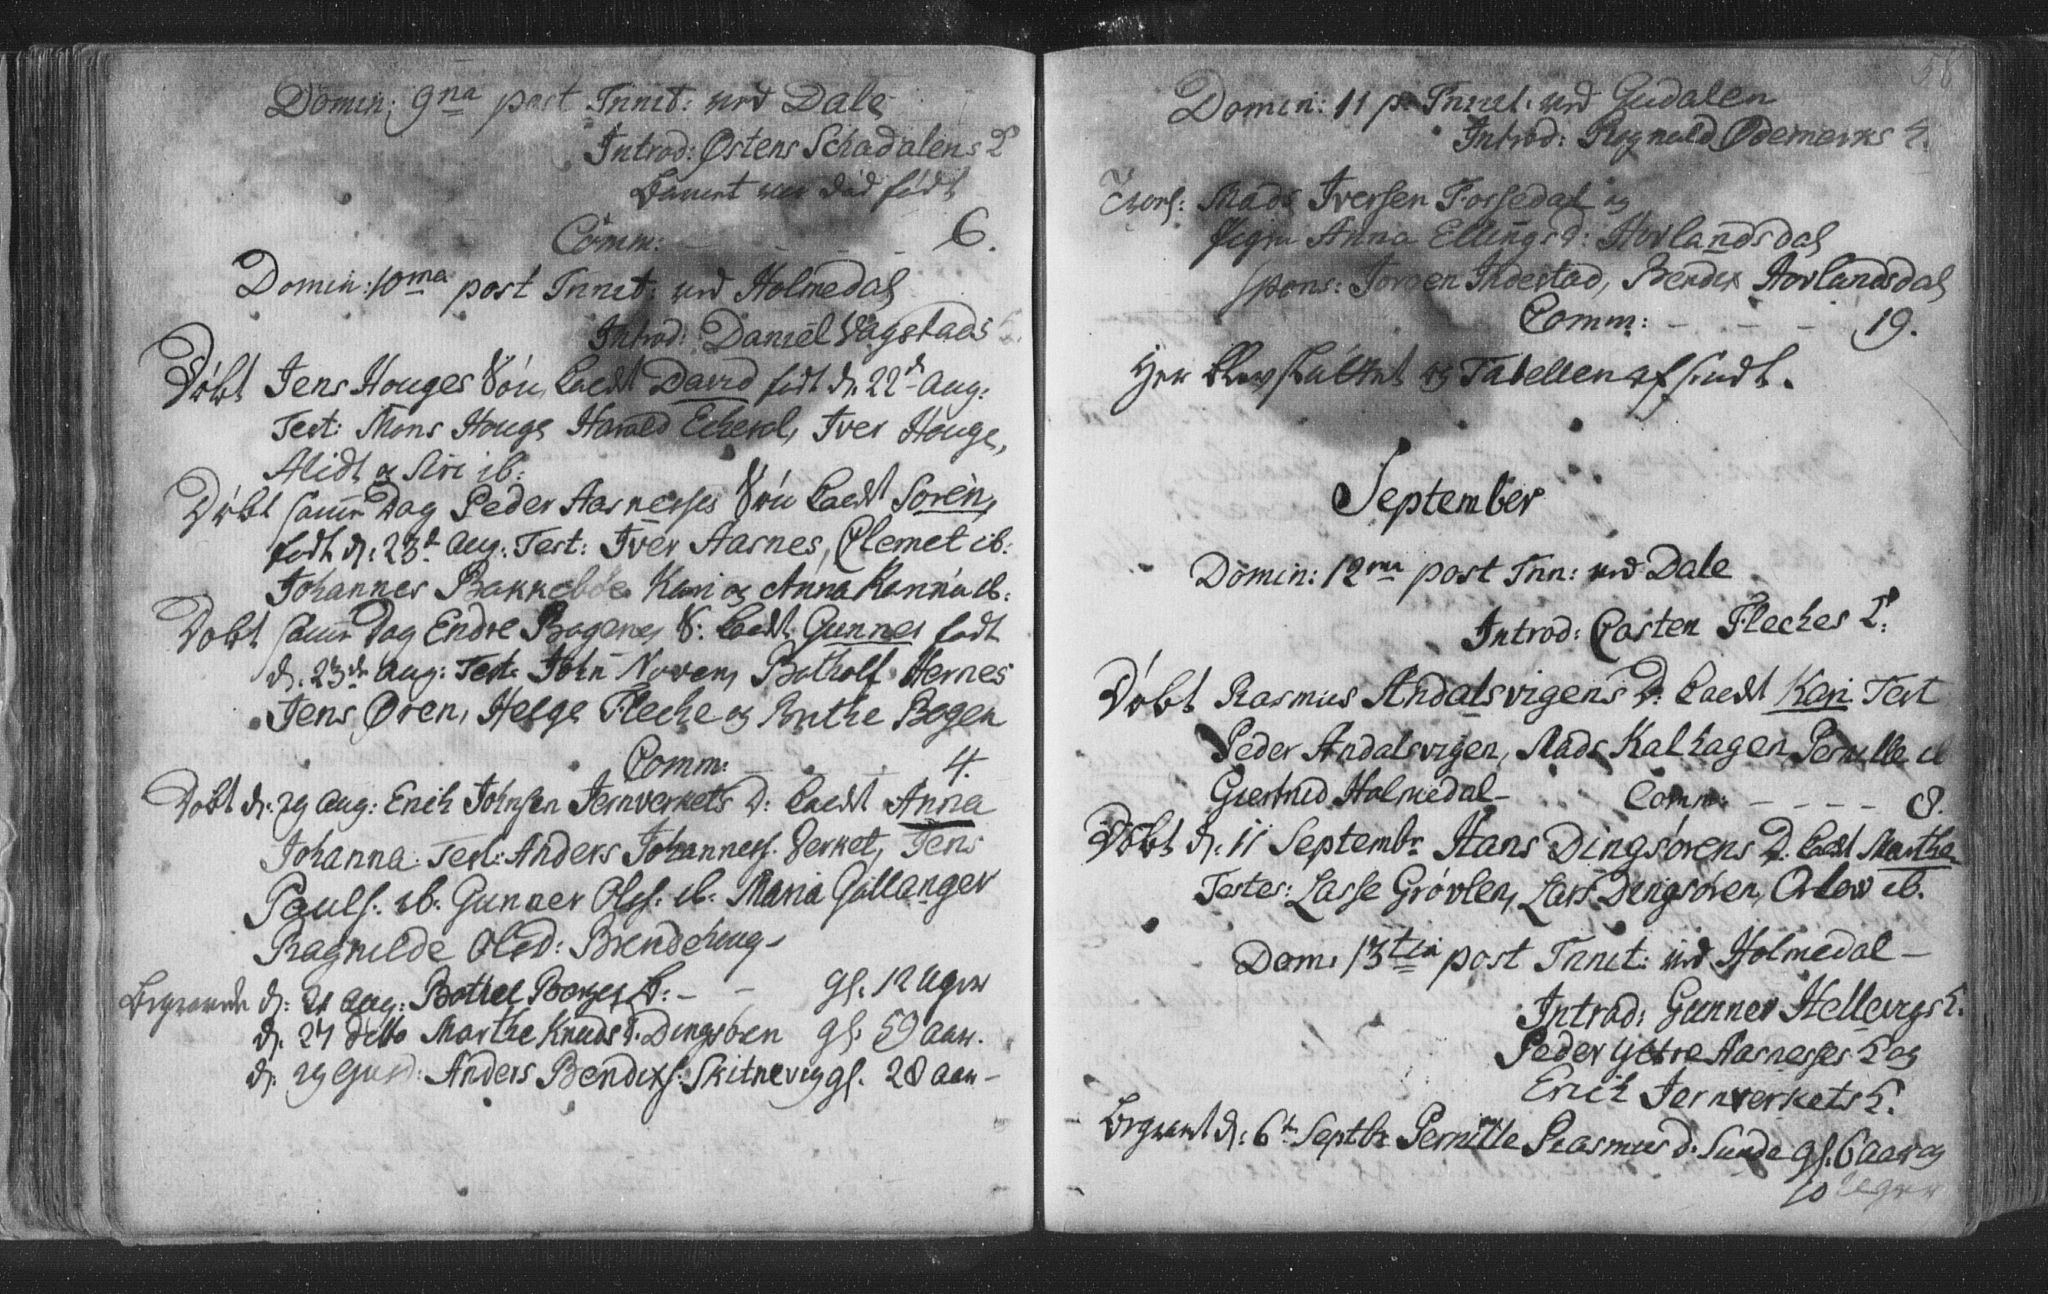 Domin: 9na post Trinit: ved Dale
Introd: Østens Schadalens
Barnet var død født
Comm: - - - - 6.
Domin: 10ma post Trinit: ved Holmedal
Introd: Daniel Vagstads
Døbt Jens Houges Søn kaldt David født d. 22d Aug:
Test: Mons Houge Harald Echerol, Iver Houge,
Alidt og Siri ib:
Døbt samme Dag Peder Aasneses Søn kaldt Soren,
født d: 23d Aug: Test: Iver Aasnes, Clemet ib:
Johannes Bakkebøe Kari og Anna ib:
Døbt samme Dag Endre Bogenes S: kaldt Gunner født
d. 23de Aug: Test: John Noven, Botholf Hernes
Jens Øren, Helge Fleche og Brithe Bogen
Comm: - - 4.
Døbt d: 29 Aug: Erich Johnsen Jernverkets D: kaldt Anna
Johanna. Test: Anders Johanness. Verket, Jens
Pauls. ib. Gunner Ols. ib. Maria Gallanger
Ragnilde Olsd: Brendehoug -
Begravede d: 21 Aug: Bothel - - gl. 12 Uger
d. 27 dito Marthe Knudsd. Dingsøen gl. 59 Aar.
d. 29 Anders Bendixs: Skitnevig gl. 28 Aar -
58
Domin: 11 p. Trinit. ved Gudalen
Introd: Rognald Ødemerks K.
Trol: Mads Iversen Forsedal og
Pigen Anna Ellingsd: Hovlandsdal
spons: Joroen Indestad, Bendix Hovlandsdal
Comm: - - - 19.
Her blev Skattet og Tabellen afsendt.
September
Domin: 12ma post Trin: ved Dale
Introd: Casten Fleches K:
Døbt Rasmus Andalsvigens D: kaldt Kari Test
Peder Andalsvigen, Mads Kalhagen Pernille ib
Giertrud Holmedal - Comm: - - - - 8.
Døbt d. 11 Septembr. Hans Dingsørens D. kaldt Marthe
Testes: Lasse Grøvlen, Lars Dingsøren, Ørlov ib.
Dom: 13tia post Trinit: ved Holmedal -
Introd: Gunner Hellevigs K.
Peder Ytre Aasneses K og
Erich Jernverkets K.
Begravet d: 6te Septbr Pernille Rasmusd. Sunde gl. 6 Aar og
10 Uger